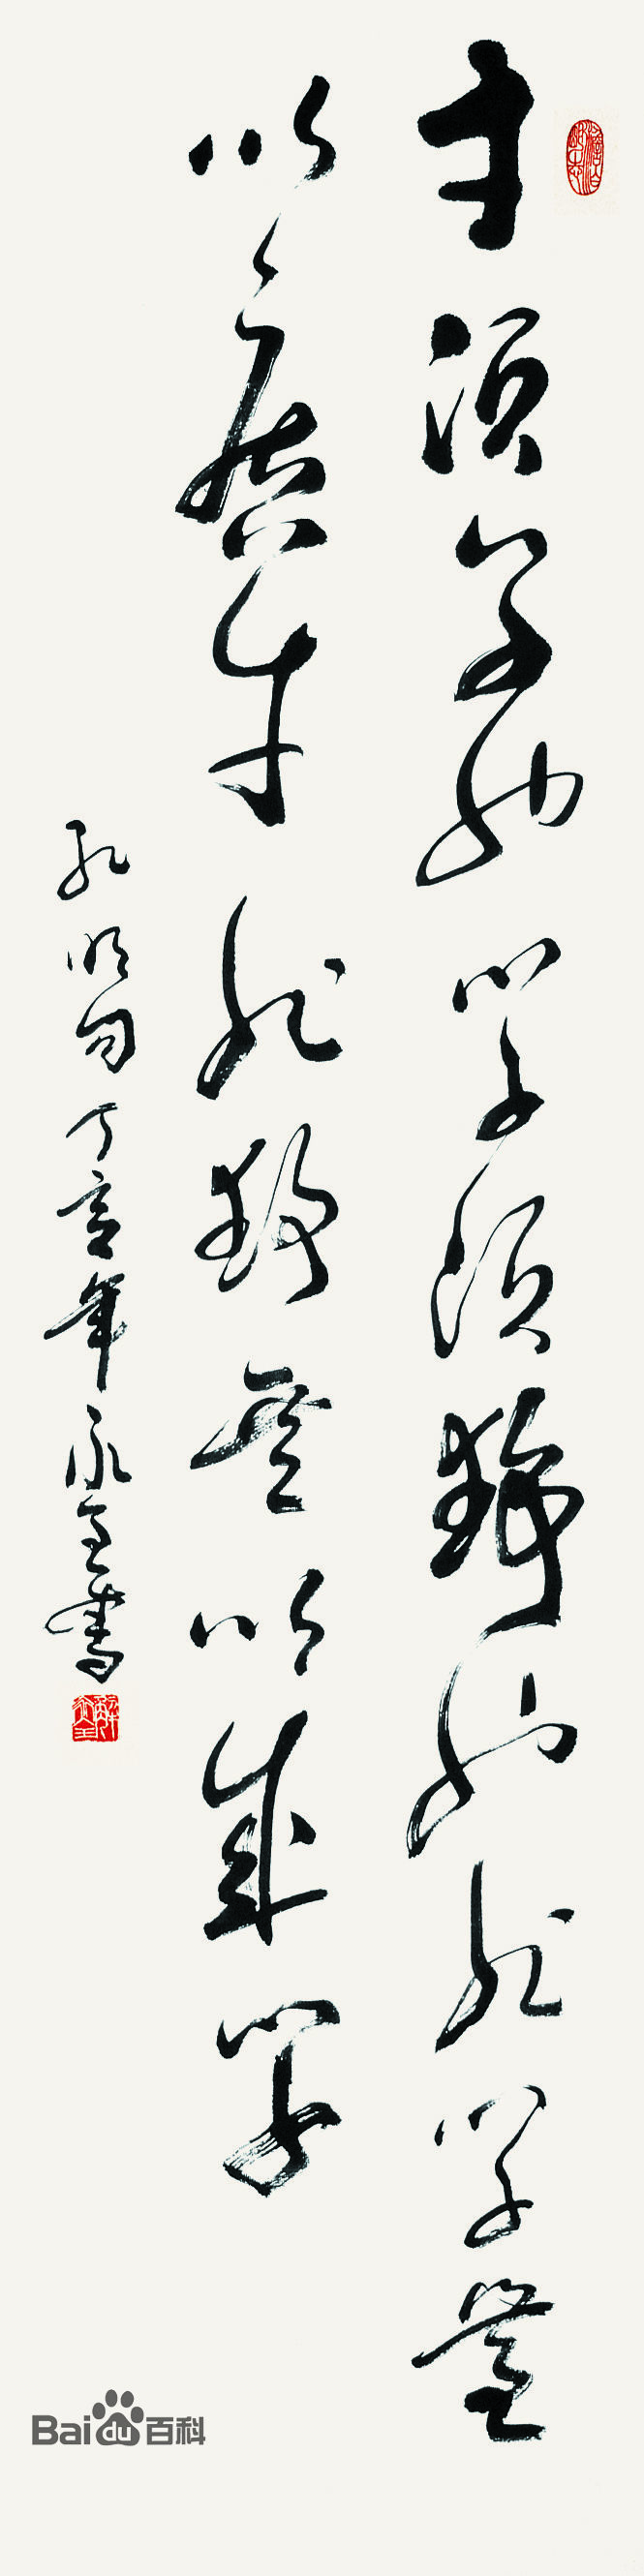 才須學也學須靜也非學無
以廣才非靜無以成學
孔明句丁亥年永全書
Bai du 百科